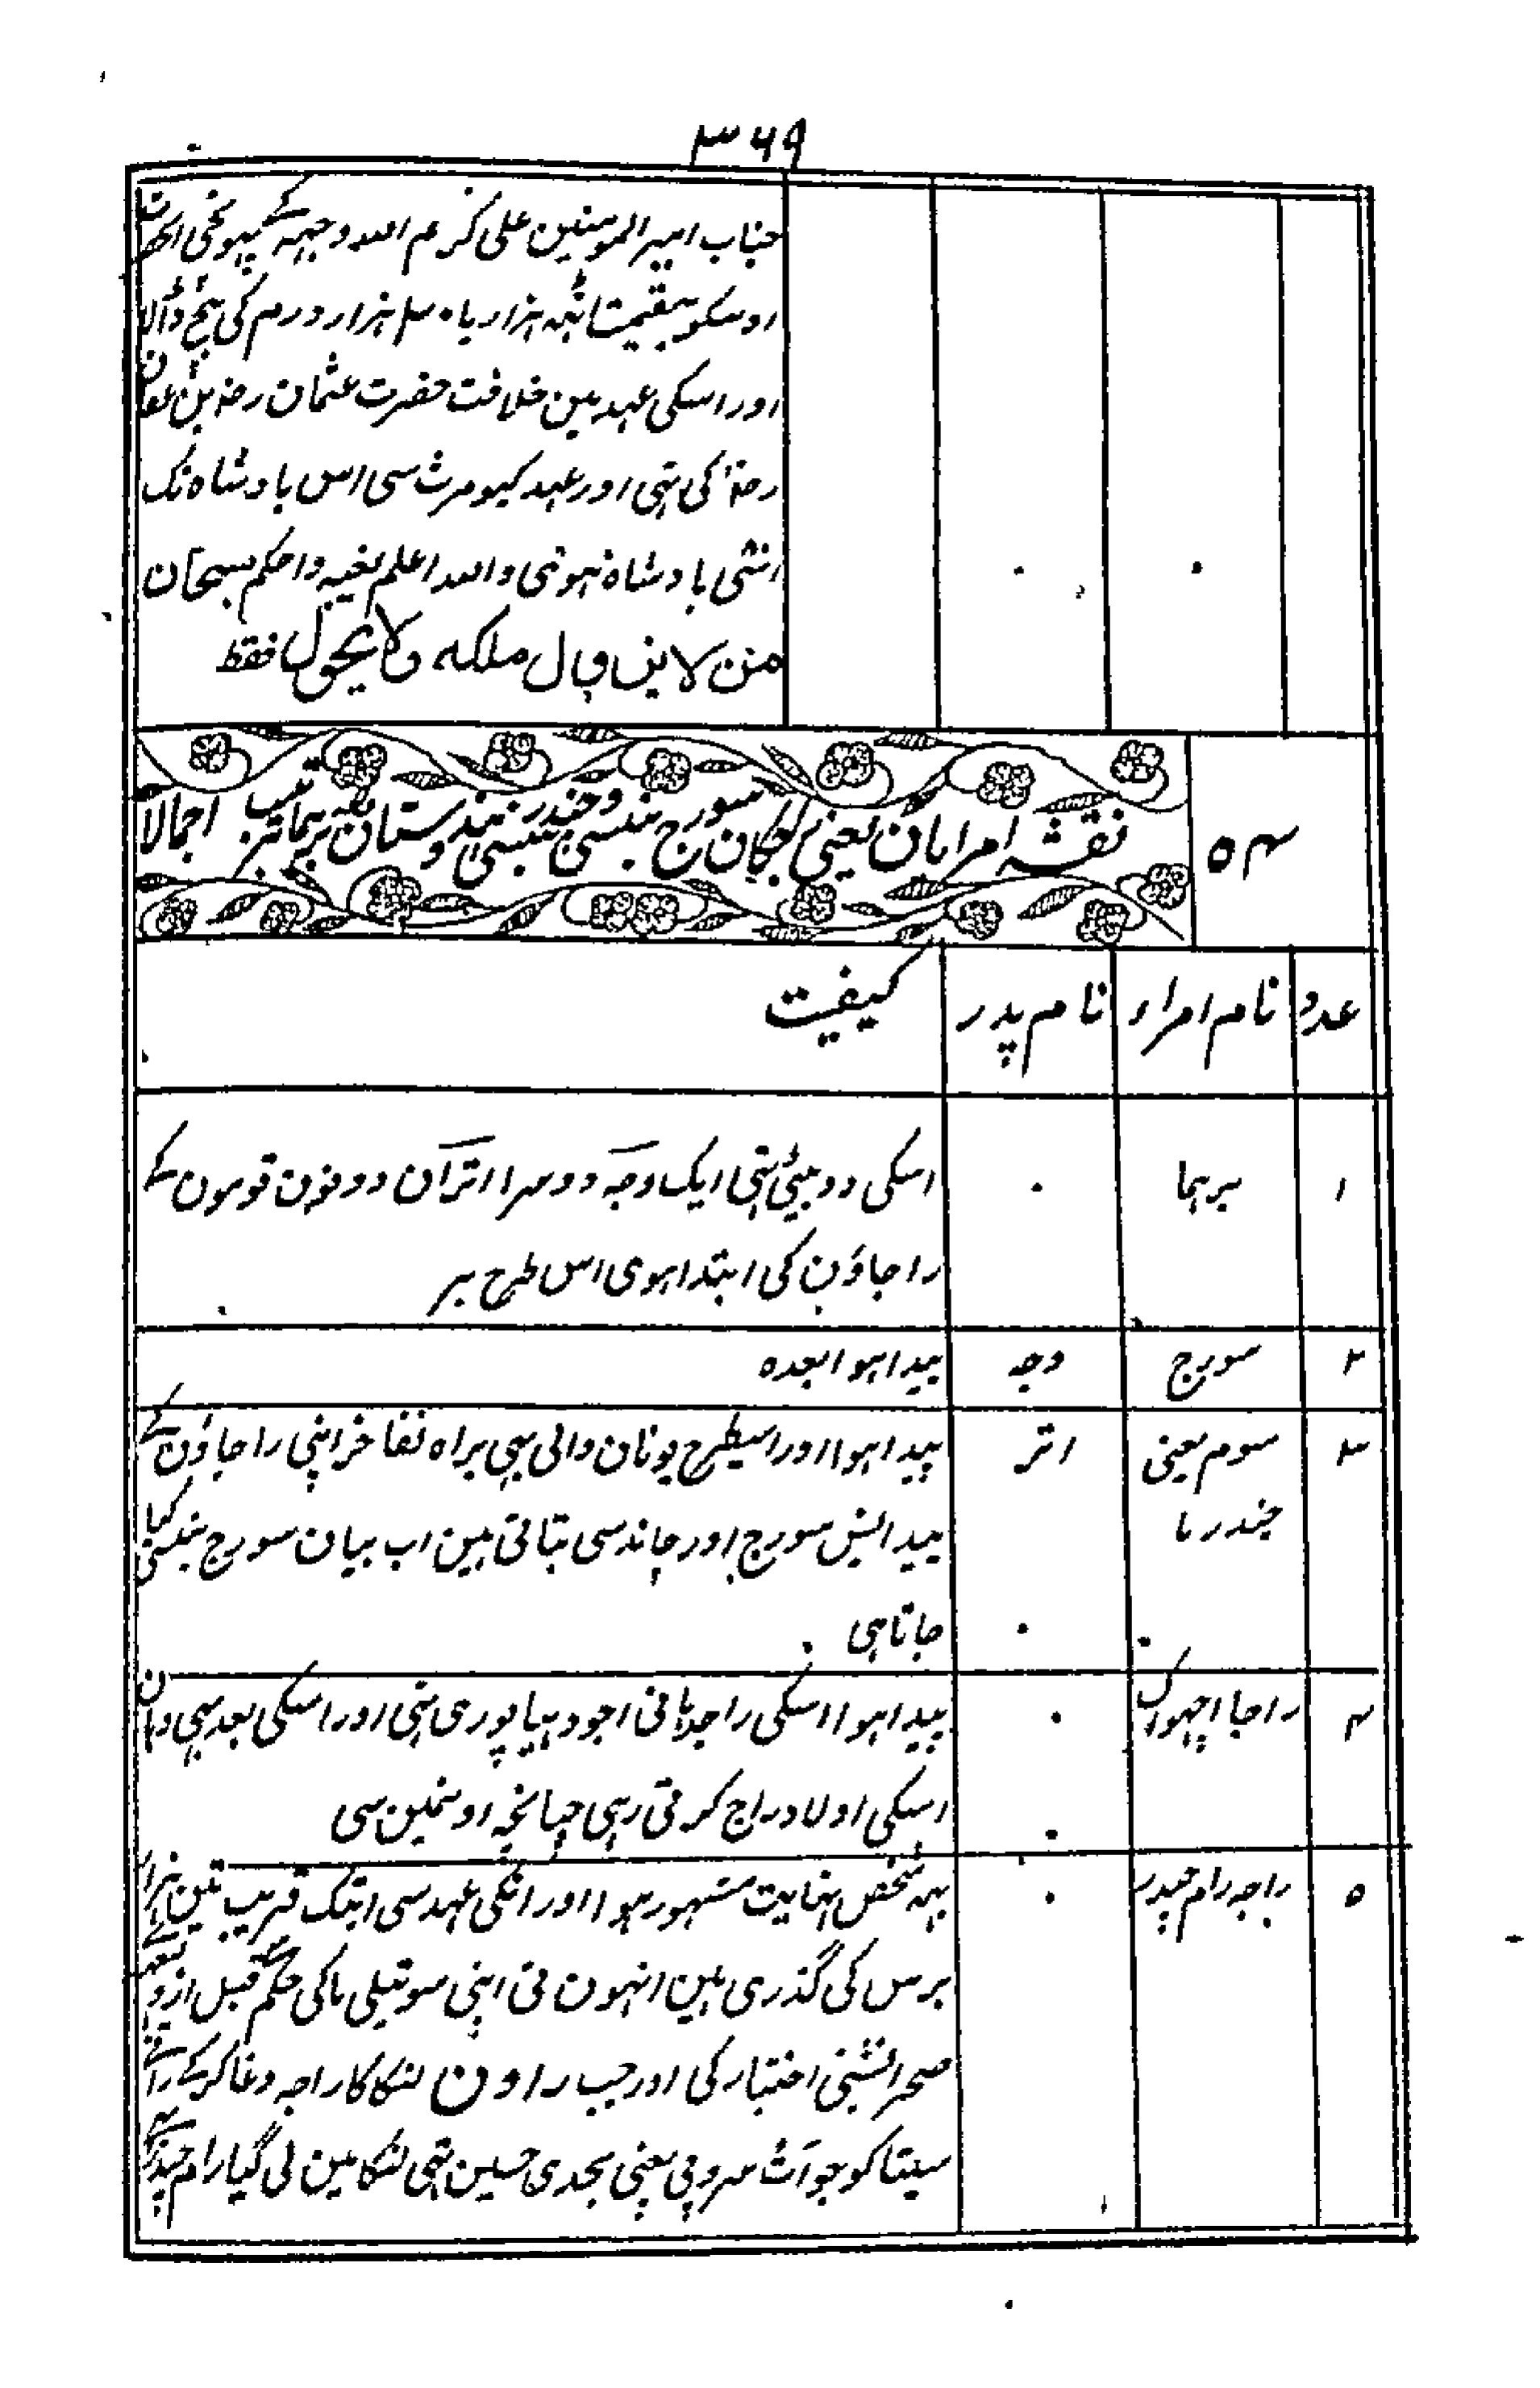 ۳۶۹
جناب امیر المومنین علی کرم اللہ وجہہ کے پہونچی
اوسکو بقیمت اٹہہ ہزار یا ۳۰ ہزار درم کی بیچ ڈالا
اور اسکی عہد مین خلافت حضرت عثمان رضہ بن عفان
رضہ کی تہی اور عہد کیومرث سی اس بادشاہ تک
انتی بادشاہ ہوئی واللہ اعلم بغیبہ واحکم سبحان
من لا یزال ملکہ ولا یحول فقط
۵۴
نقشہ امرایان یعنی راجگان سورج بنسی و چندر بنسی ہندوستان بقید ترتیب اجمالاً
عدد نام امراء نام پدر کیفیت
۱ برہما ۰ اسکی دو بیٹی تہی ایک وجہ دوسرا اتر ان دونون قومون کے
راجاؤن کی ابتدا ہوی اس طرح پر
۲ سورج وجہ پیدا ہوا بعدہ
۳ سوم یعنی اتر پیدا ہوا اور اسیطرح یونان والی بہی براہ تفاخر اپنی راجاؤن کے
چندرما پیدایش سورج اور چاند سی بتاتی ہین اب بیان سورج بنسی کیا
جاتا ہی
۴ راجا اچہواک ۰ پیدا ہوا اسکی راجدہانی اجودہیا پوری تہی اور اسکی بعد بہی وہان
اسکی اولاد راج کرتی رہی چنانچہ اونمین سی
۵ راجہ رام چندر ۰ یہہ شخص نہایت مشہور ہوا اور انکی عہد سی ابتک قریب تین ہزار
برس کی گذری ہین انہون نی اپنی سوتیلی ما کی حکم قبل از
صحرانشینی اختیار کی اور جب راون لنکا کا راجہ دغا کرکے
سیتا کو جو اَت سروپ یعنی بیحدی حسین تہی لنکا مین لی گیا رام چندر نے